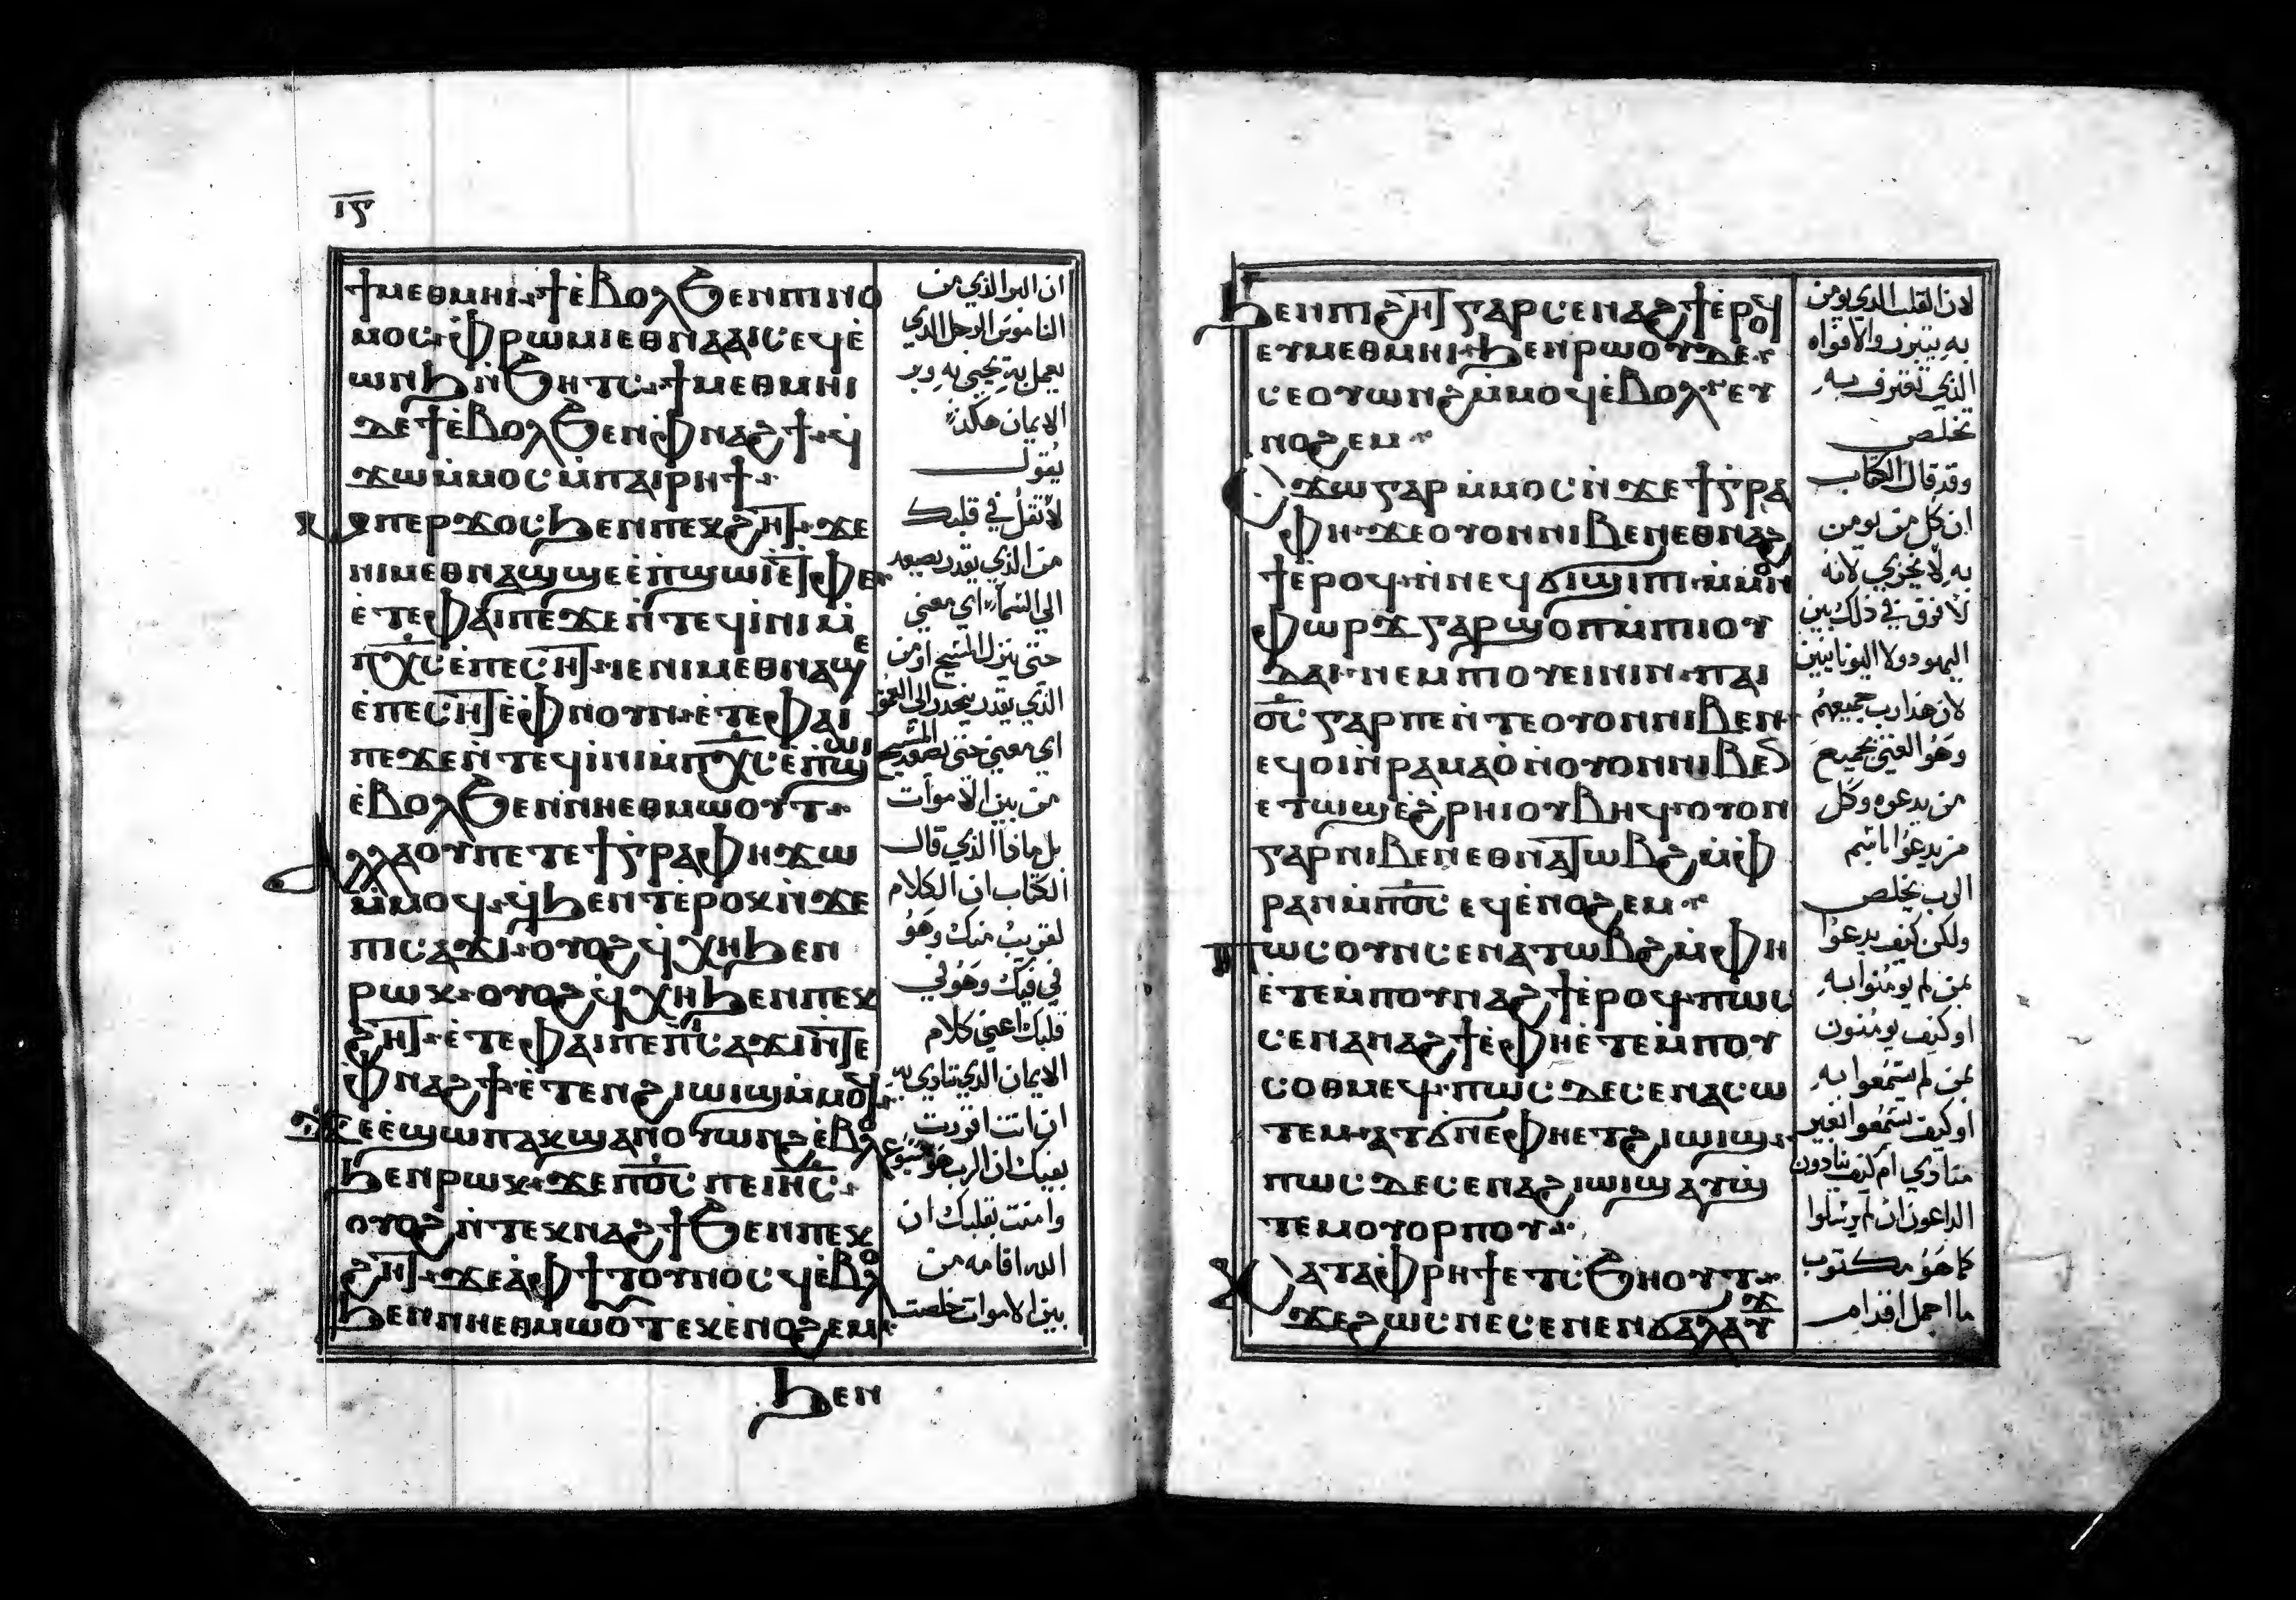 ⲓⲋ
ϯⲙⲉⲑⲙⲏⲓ ϯⲉ̀ⲃⲟⲗϧⲉⲛⲡⲓⲛⲟ
ⲙⲟⲥ ⲫⲣⲱⲙⲓⲉⲑⲛⲁⲁⲓⲥⲉϥⲉ̀
ⲱⲛϧⲛ̀ϧⲏⲧⲥ ϯⲙⲉⲑⲙⲏⲓ
ⲇⲉϯⲉ̀ⲃⲟⲗϧⲉⲛⲫⲛⲁϩϯ ϥ
ϫⲱⲙ̀ⲙⲟⲥⲙ̀ⲡⲁⲓⲣⲏϯ
ⲙⲡⲉⲣϫⲟⲥϧⲉⲛⲡⲉⲕϩⲏⲧ ϫⲉ
ⲛⲓⲙⲉⲑⲛⲁϣϣⲉⲉ̀ⲡ̀ϣⲱⲓⲉ̀ⲧⲫⲉ
ⲉ̀ⲧⲉⲫⲁⲓⲡⲉϫⲉⲛ̀ⲧⲉϥⲓⲛⲓⲙ̀
ⲡⲭ̅ⲥ̅ⲉ̀ⲡⲉⲥⲏⲧ ⲓⲉⲛⲓⲙⲉⲑⲛⲁϣⲉ
ⲉ̀ⲡⲉⲥⲏⲧⲉ̀ⲫⲛⲟⲩⲛ ⲉ̀ⲧⲉⲫⲁⲓ
ⲡⲉϫⲉⲛ̀ⲧⲉϥⲓⲛⲓⲙ̀ⲡⲭ̅ⲥ̅ⲉ̀ⲡ̀ϣⲱⲓ
ⲉ̀ⲃⲟⲗϧⲉⲛⲛⲏⲉⲑⲙⲱⲟⲩⲧ
ⲁⲗⲗⲁⲟⲩⲡⲉⲧⲉϯⲅⲣⲁⲫⲏϫⲱ
ⲙ̀ⲙⲟϥ ϥ̀ϧⲉⲛⲧⲉ̀ⲣⲟⲕⲛ̀ϫⲉ
ⲡⲓⲥⲁϫⲓ ⲟⲩⲟϩϥ̀ⲭⲏϧⲉⲛ
ⲣⲱⲕ ⲟⲩⲟϩϥ̀ⲭⲏϧⲉⲛⲡⲉⲕ
ϩⲏⲧ ⲉ̀ⲧⲉⲫⲁⲓⲡⲉⲡ̀ⲥⲁϫⲓⲛ̀ⲧⲉ
ⲫⲛⲁϩϯ ⲉ̀ⲧⲉⲛϩⲓⲱⲓϣⲙ̀ⲙⲟϥ
ϫⲉⲉ̀ϣⲱⲡⲁⲕϣⲁⲛⲟⲩⲱⲛϩⲉ̀ⲃⲟⲗ
ϧⲉⲛⲣⲱⲕ ϫⲉⲡ⳪ⲡⲉⲓⲏ̅ⲥ̅
ⲟⲩⲟϩⲛ̀ⲧⲉⲕⲛⲁϩϯϧⲉⲛⲡⲉⲕ
ϩⲏⲧ ϫⲉⲁ̀ⲫϯⲧⲟⲩⲛⲟⲥϥⲉ̀ⲃⲟⲗ
ϧⲉⲛⲛⲏⲉⲑⲙⲱⲟⲩⲧⲉⲕⲉ̀ⲛⲟϩⲉⲙ
ϧⲉⲛ
ان البر الذي من
الناموس الرجل الذي
يعمل به يحيي به وبر
الايمان هكذا
يقول
لا تقل في قلبك
من الذي يقدر يصعد
الي السما اي معني
حتي ينزل المسيح او من
الذي يقدر ينحدر الي العمق
اي معني حتي يصعد المسيح
من بين الاموات
بل ماذا الذي قال
الكتاب ان الكلام
لقريب منك وهو
في فيك وهو في
قلبك اعني كلام
الايمان الذي ننادي به
ان انت اقررت
بفيك ان الرب هو يسوع
وامنت بقلبك ان
الله اقامه من
بين الاموات خلصت
ϧⲉⲛⲡⲓϩⲏⲧⲅⲁⲣⲥⲉⲛⲁϩϯⲉ̀ⲣⲟϥ
ⲉⲩⲙⲉⲑⲙⲏⲓ ϧⲉⲛⲣⲱⲟⲩⲇⲉ
ⲥⲉⲟⲩⲱⲛϩⲙ̀ⲙⲟϥⲉ̀ⲃⲟⲗ ⲉⲩ
ⲛⲟϩⲉⲙ
ⲥϫⲱⲅⲁⲣⲙ̀ⲙⲟⲥⲛ̀ϫⲉϯⲅ̀ⲣⲁ
ⲫⲏ ϫⲉⲟⲩⲟⲛⲛⲓⲃⲉⲛⲉⲑⲛⲁϩ
ϯⲉ̀ⲣⲟϥ ⲛ̀ⲛⲉϥϭⲓϣⲓⲡⲓ ⲙ̀ⲙⲟⲛ
ⲫⲱⲣϫⲅⲁⲣϣⲟⲡⲙ̀ⲡⲓⲓⲟⲩ
ⲇⲁⲓ ⲛⲉⲙⲡⲓⲟⲩⲉⲓⲛⲓⲛ ⲡⲁⲓ
⳪ⲅⲁⲣⲡⲉⲛ̀ⲧⲉⲟⲩⲟⲛⲛⲓⲃⲉⲛ
ⲉϥⲟⲓⲛ̀ⲣⲁⲙⲁⲟ̀ⲛ̀ⲟⲩⲟⲛⲛⲓⲃⲉⲛ
ⲉⲧⲱϣⲉ̀ϩⲣⲏⲓⲟⲩⲃⲏϥ ⲟⲩⲟⲛ
ⲅⲁⲣⲛⲓⲃⲉⲛⲉⲑⲛⲁⲧⲱⲃϩⲙ̀ⲫ
ⲣⲁⲛⲙ̀ⲡ⳪ⲉϥⲉ̀ⲛⲟϩⲉⲙ
ⲡⲱⲥⲟⲩⲛⲥⲉⲛⲁⲧⲱⲃϩⲙ̀ⲫⲏ
ⲉ̀ⲧⲉⲙ̀ⲡⲟⲩⲛⲁϩϯⲉ̀ⲣⲟϥ ⲡⲱⲥ
ⲥⲉⲛⲁⲛⲁϩϯⲉ̀ⲫⲏⲉ̀ⲧⲉⲙ̀ⲡⲟⲩ
ⲥⲟⲑⲙⲉϥ ⲡⲱⲥⲇⲉⲥⲉⲛⲁⲥⲱ
ⲧⲉⲙ ⲁⲧϭⲛⲉⲫⲏⲉⲧϩⲓⲱⲓϣ
ⲡⲱⲥⲇⲉⲥⲉⲛⲁϩⲓⲱⲓϣⲁⲩϣ̀
ⲧⲉⲙⲟⲩⲟⲣⲡⲟⲩ
ⲕⲁⲧⲁⲫⲣⲏϯⲉⲧⲥ̀ϧⲏⲟⲩⲧ
ϫⲉϩⲱⲥⲛⲉⲥⲉⲛⲉⲛϭⲁⲗⲁⲩϫ
لان القلب الذي يومن
به يتبرر والافواه
الذي تعترف به
تخلص
وقد قال الكتاب
ان كل من يومن
به لا يخزي لانه
لا فرق في ذلك بين
اليهود ولا اليونانيين
لان هذا رب جميعهم
وهو الغني لجميع
من يدعوه وكل
من يدعوا باسم
الرب يخلص
ولكن كيف يدعوا
بمن لم يومنوا به
او كيف يومنون
بمن لم يستمعوا به
او كيف يستمعوا بغير
منادي ام كيف ينادون
الداعون ان لم يرسلوا
كما هو مكتوب
ما اجمل اقدام